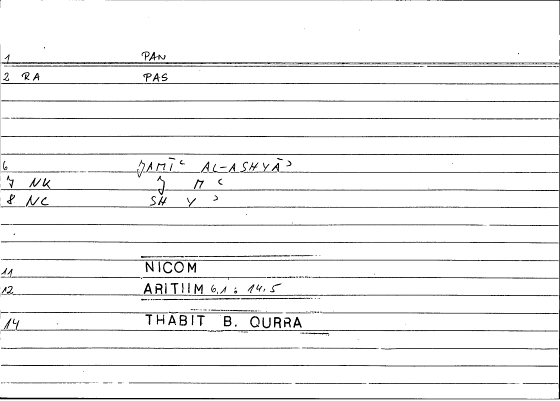 1 PAN
2 RA PAS
6 JAMĪʿ AL-ASHYĀʾ
7 NK J M ʿ
8 NC SH Y ʾ
11 NICOM
12 ARITIIM 6.1 : 14.5
14 THĀBIT B. QURRA